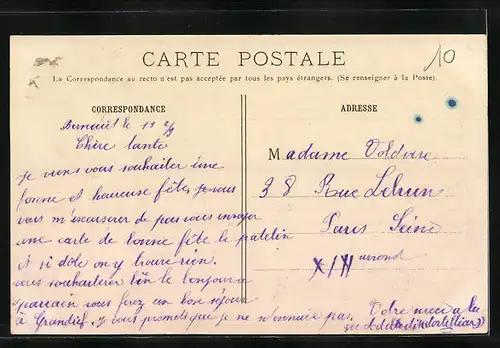 CARTE POSTALE
10
La Correspondance au recto n'est pas acceptée par tous les pays étrangers. (Se renseigner à la Poste).
CORRESPONDANCE
le 13
Chère tante
je viens vous souhaiter une
bonne et heureuse fête, je vous
vous m'excuserer de pas vous envoyer
une carte de bonne fête le patelin
et si dôle on y trouve rien.
vous souhaiterer bin le bonjour a
parrain vous ferez un bon séjour
à Grandief. Je vous promets que je ne m'ennuie pas.
Votre niece
ADRESSE
Madame Voldoire
38 Rue Lebrun
Paris Seine
XIII arrond